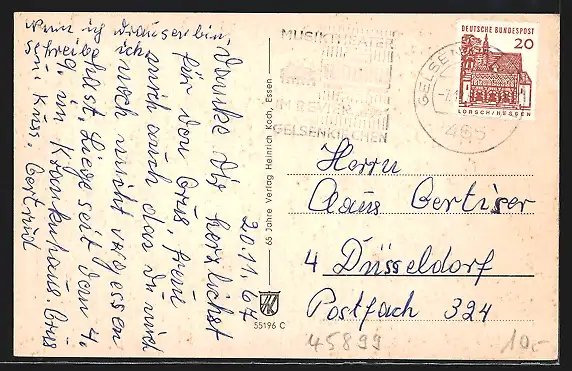 20.11.67
Danke Dir herzlichst
für den Grus, freue
mich auch das Du mich
noch nicht vergessen
hast. Liege seit dem 4.
9. im Krankenhaus. Grus
wenn ich drausen bin,
schreibe ich
ein Kuss. Gertrud
65 Jahre Verlag Heinrich Koch, Essen
55196 C
MUSIKTHEATER
IM REVIER
GELSENKIRCHEN
GELSEN
465
DEUTSCHE BUNDESPOST
20
LORSCH/HESSEN
Herrn
Claus Gertiser
4 Düsseldorf
Postfach 324
45899
10,-